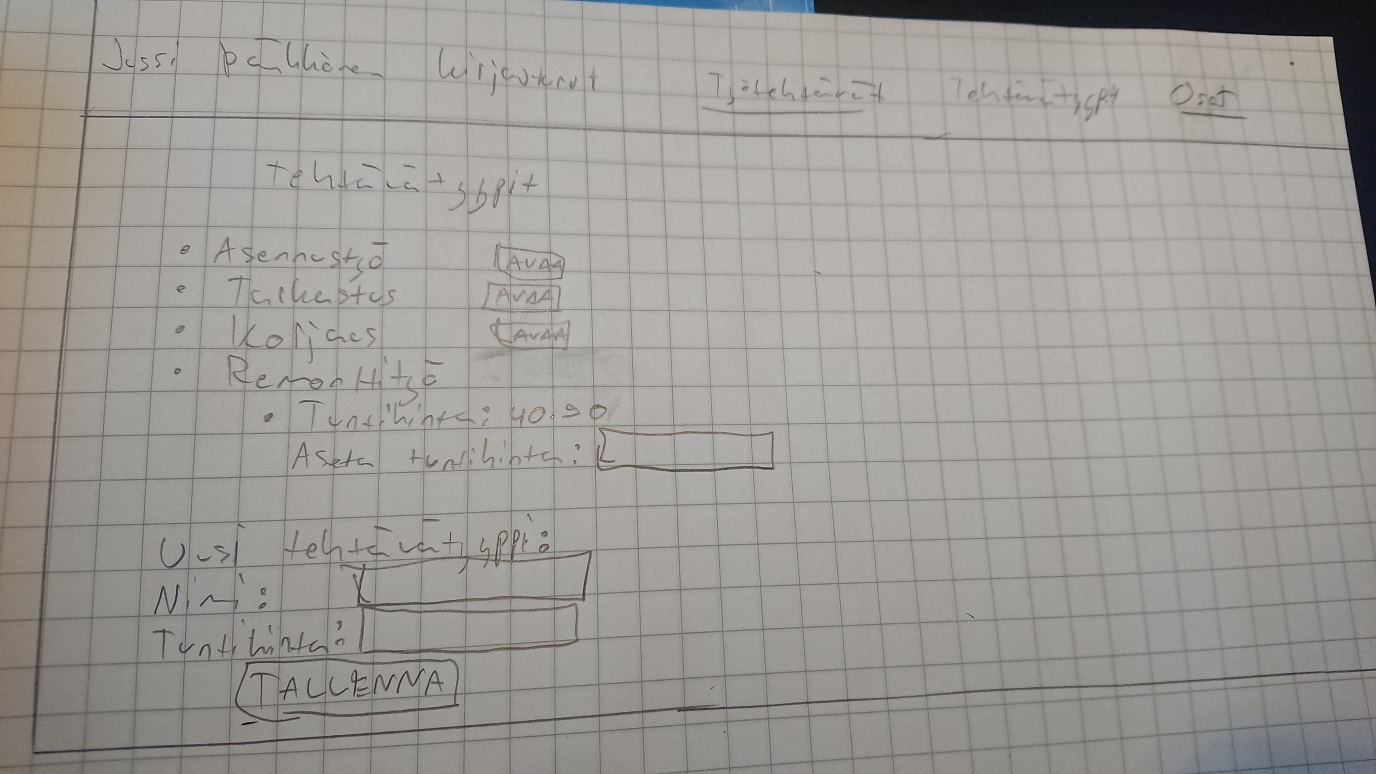 Jussi kirjautunut Työtehtävät Tehtävätyypit Osat
tehtävätyypit
• Asennustyö AVAA
• Tarkastus AVAA
• Korjaus AVAA
• Remonttityö
• Tuntihinta: 40.90
Aseta tuntihinta:
Uusi tehtävätyyppi:
Nimi:
Tuntihinta:
TALLENNA